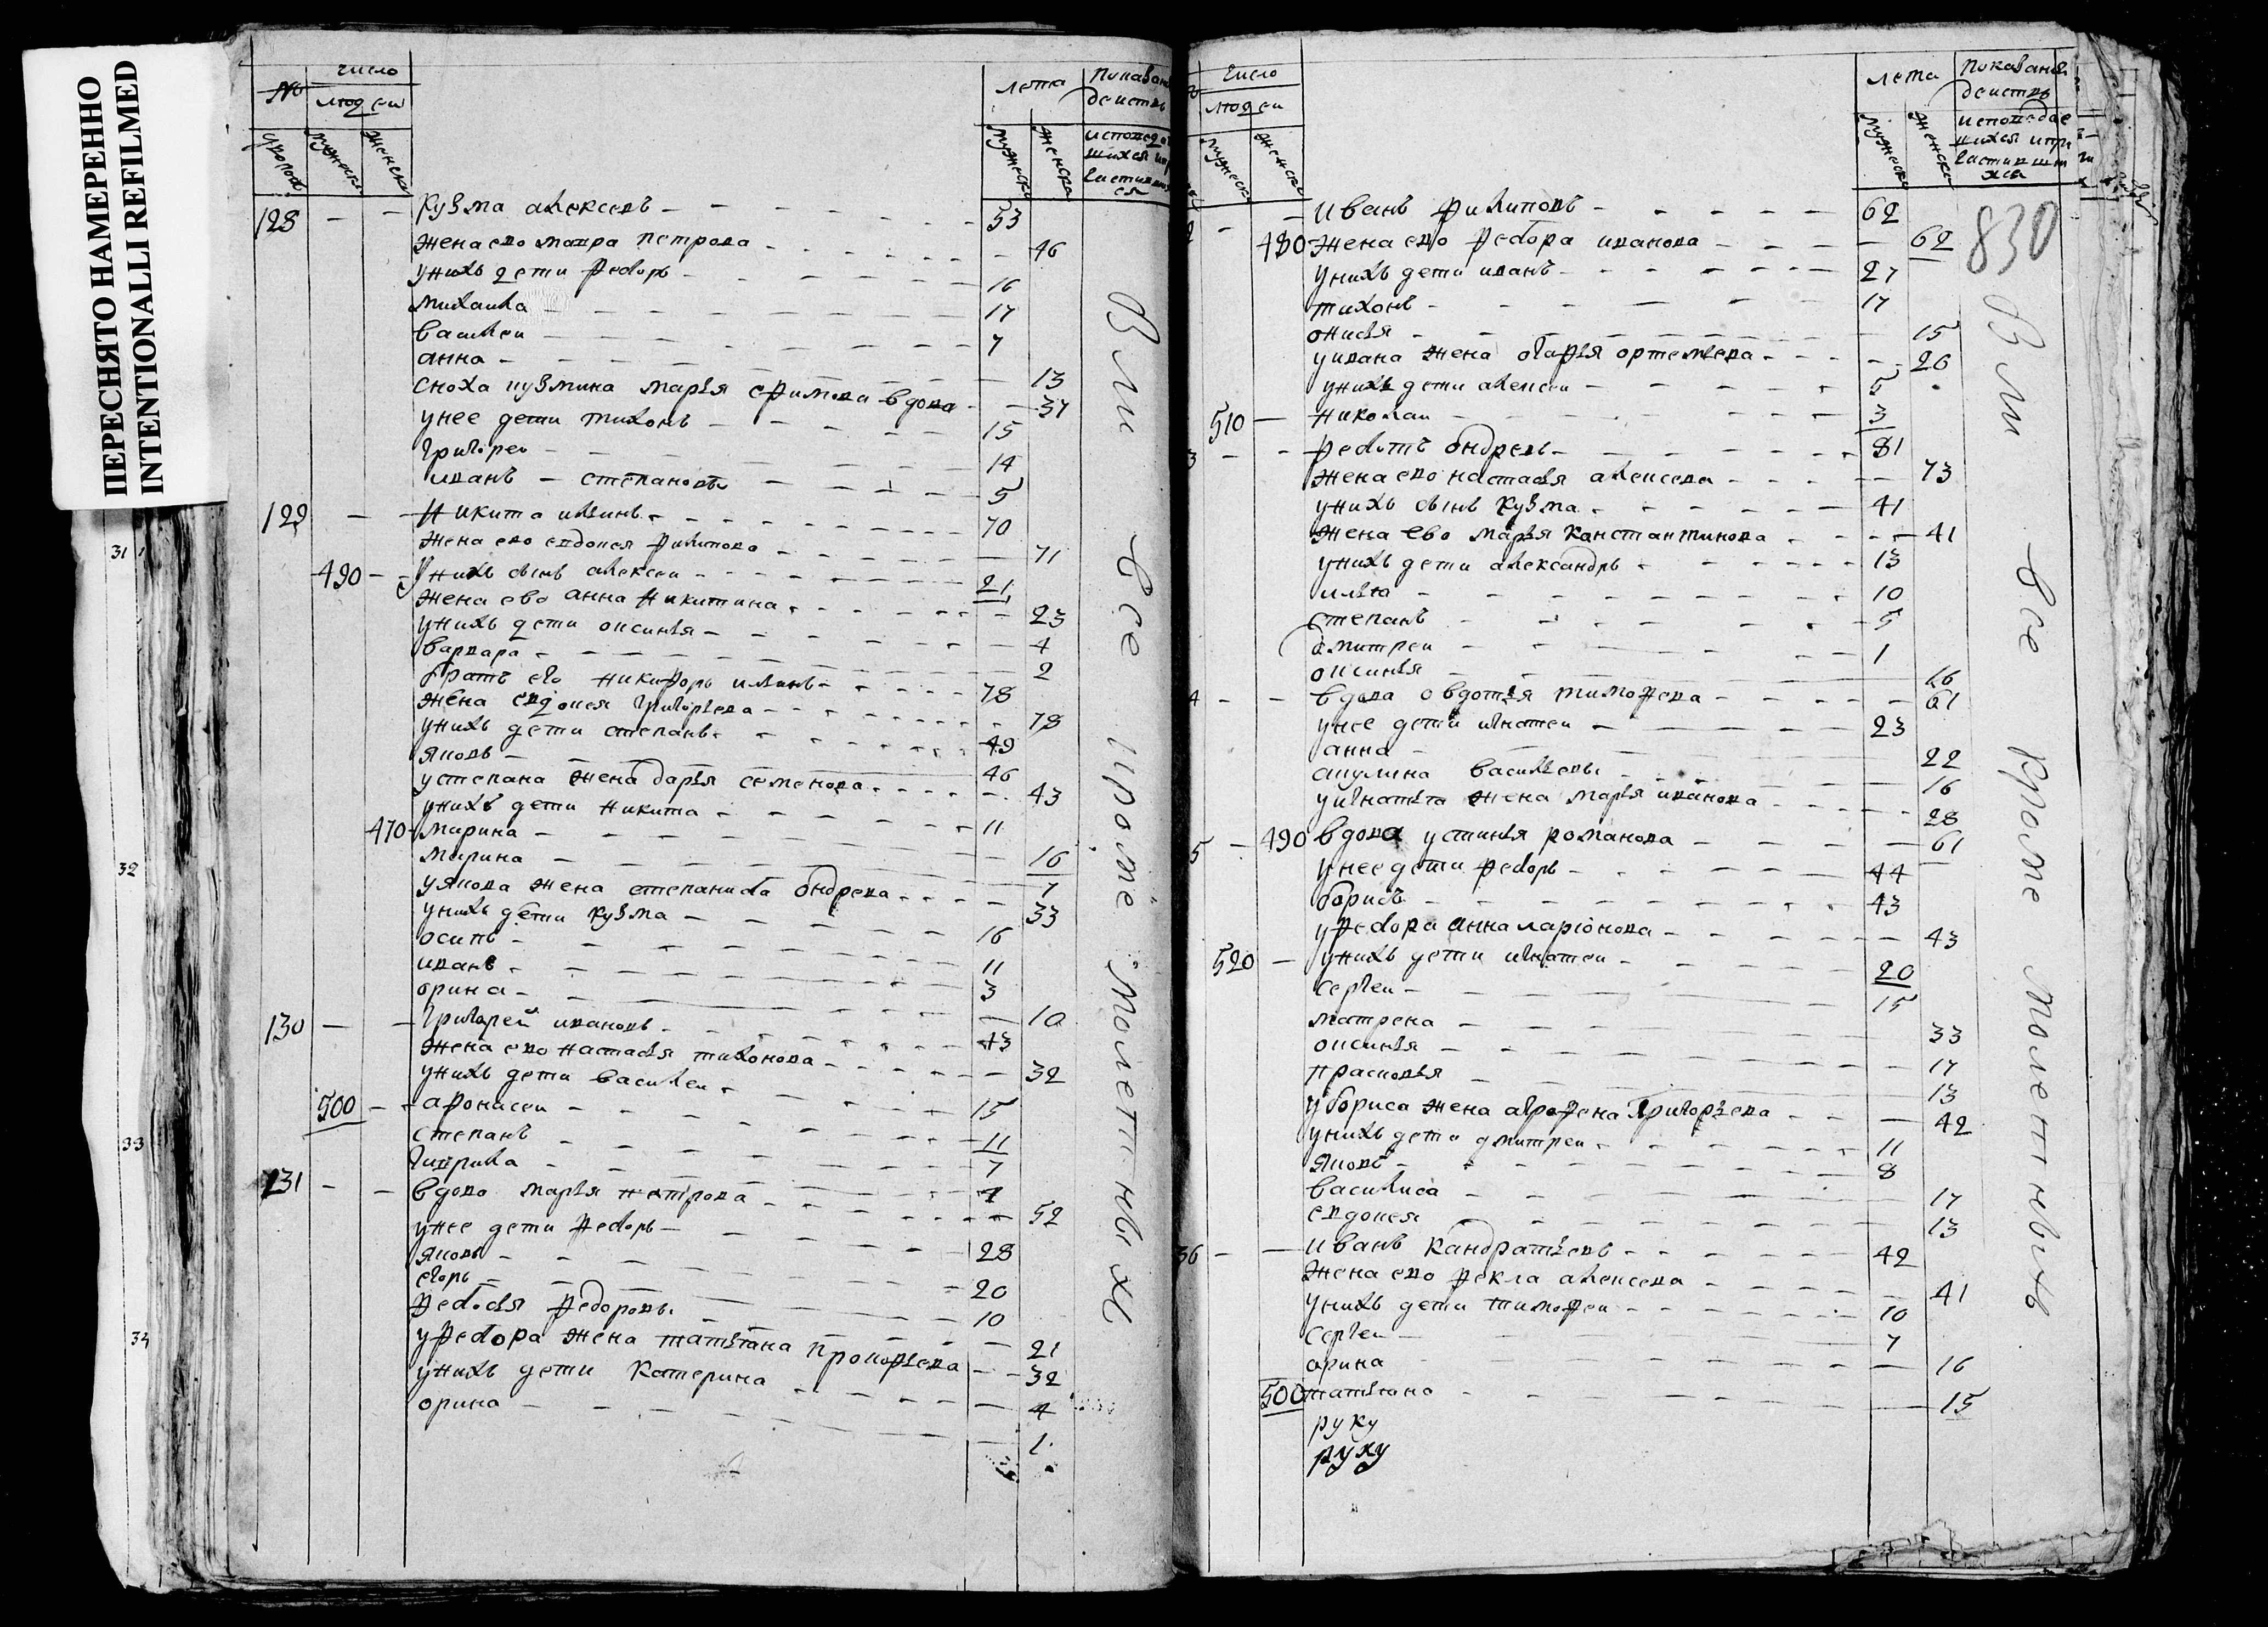 ПЕРЕСНЯТО НАМЕРЕННО
INTENTIONALLI REFILMED
31
32
33
34
№ Число людеи лета
мужеска женска
128 Кузма алексеевъ 53
жена ево мавра петрова 46
у нихъ дети федоръ 16
михаила 17
василеи 7
анна 13
сноха кузмина марья ефимова вдова 37
у нее дети тихонъ 15
григореи 14
иванъ степановы 5
129 Никита ильинъ 70
жена ево евдокея филипова 71
490 у нихъ сынъ алексеи 21
жена ево анна никитина 23
у нихъ дети оксинья 4
варвара 2
братъ ево никифоръ ильинъ 78
жена евдокея григорьева 78
у нихъ дети степанъ 49
яковъ 46
у степана жена дарья семенова 43
у нихъ дети никита 11
470 марина
марина 16
у якова жена степанида ондреева 7
у нихъ дети кузма 33
осипъ 16
иванъ 11
орина 3
130 Григорей ивановъ 10
43
жена ево настасья тихонова 32
у нихъ дети василеи 15
500 афонасеи
степанъ 11
гаврила 7
131 вдова марья петрова 4
52
у нее дети федоръ 28
яковъ 20
егоръ 10
федосья федоровы 21
у федора жена татьяна прокофьева 32
у нихъ дети катерина 4
орина 1
Вси все кроме молетныхъ
Число людеи лета Показание деиствъ
мужеска женска исповедавшихся и причастившихся
830
Иванъ филиповъ 62
480 жена ево федора иванова 62
у нихъ дети иванъ 27
тихонъ 17
онисья 15
у ивана жена офья ортемьева 26
у нихъ дети алексеи 5
510 николаи 3
федотъ ондреевъ 81
жена ево настасья алексеева 73
у нихъ сынъ кузма 41
жена ево марья констаntинова 41
у нихъ дети александръ 13
илья 10
степанъ 5
дмитреи 1
оксинья 16
4 вдова овдотья тимофеева 61
у нее дети игнатеи 23
анна 22
акулина васильевы 16
у игнатья жена марья иванова 28
5 490 вдова устинья романова 61
у нее дети федоръ 44
борисъ 43
у федора анна ларионова 43
520 у нихъ дети игнатеи 20
сергеи 15
матрена 33
оксинья 17
прасковья 13
у бориса жена аграфена григорьева 42
у нихъ дети дмитреи 11
яковъ 8
василиса 17
евдокея 13
36 Иванъ кандратьевъ 42
жена ево фекла алексеева 41
у нихъ дети тимофеи 10
сергеи 7
арина 16
500 татьяна 15
руку
руку
все кроме молетныхъ